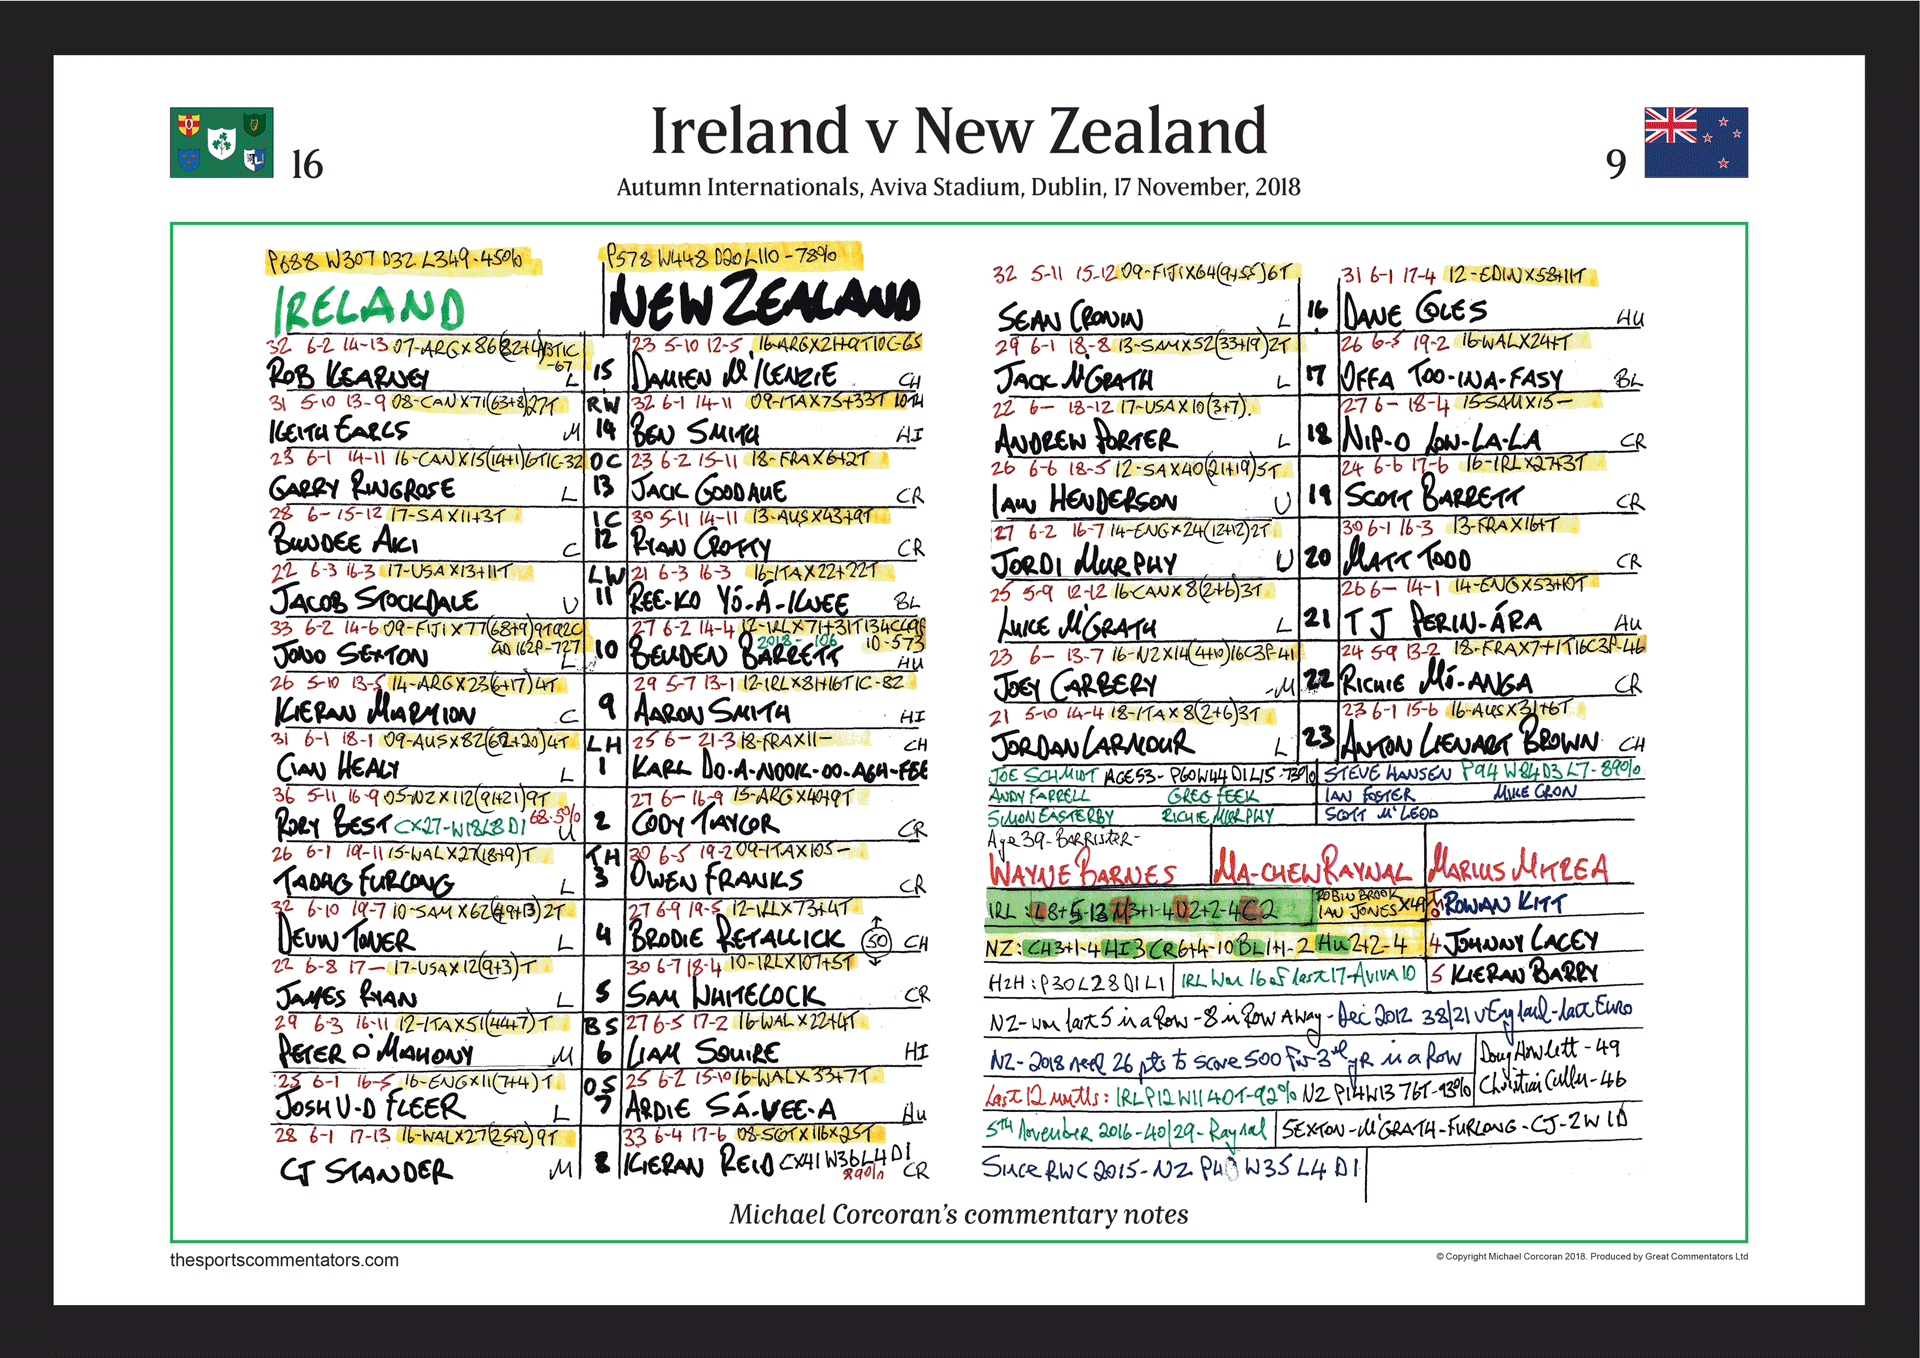 Ireland v New Zealand
16
9
Autumn Internationals, Aviva Stadium, Dublin, 17 November, 2018
P688 W307 D32 L349-45%
P578 W448 D20 L110-78%
IRELAND
NEW ZEALAND
32 6-2 14-13 07-ARGX86(82+4)13T1C-67
ROB KEARNEY L
15
23 5-10 12-5 16-ARGX21+9T10C-65
DAMIEN M'KENZIE CH
31 5-10 13-9 08-CANX71(63+8)27T
KEITH EARLS M
RW 14
32 6-1 14-11 09-ITAX75+33T
BEN SMITH HI
23 6-1 14-11 16-CANX15(14+1)6T1C-32
GARRY RINGROSE L
OC 13
23 6-2 15-11 18-FRAX6+2T
JACK GOODHUE CR
28 6- 15-12 17-SAX11+3T
BUNDEE AKI C
IC 12
30 5-11 14-11 13-AUSX43+9T
RYAN CROTTY CR
22 6-3 16-3 17-USAX13+11T
JACOB STOCKDALE U
LW 11
21 6-3 16-3 16-ITAX22+22T
REE-KO YÓ-Á-KNEE BL
33 6-2 14-6 09-FIJIX77(68+9)9T92C
4D 162P-727
JONO SEXTON L
10
27 6-2 14-4 12-IRLX71+31T134C49P
2018-106 10-573
BEUDEN BARRETT HU
26 5-10 13-5 14-ARGX23(6+17)4T
KIERAN MARMION C
9
29 5-7 13-1 12-IRLX81+16T1C-82
AARON SMITH HI
31 6-1 18-1 09-AUSX82(62+20)4T
CIAN HEALY L
LH 1
25 6- 21-3 18-FRAX11- CH
KARL DO-A-NOOK-OO-AGH-FEE
36 5-11 16-9 05-NZX112(91+21)9T
RORY BEST CX27-W18L8D1 68.5% U
2
27 6- 16-9 15-ARGX40+9T
CODY TAYLOR CR
26 6-1 19-11 15-WALX27(18+9)T
TADHG FURLONG L
TH 3
30 6-5 19-2 09-ITAX105-
OWEN FRANKS CR
32 6-10 19-7 10-SAMX62(49+13)2T
DEVIN TONER L
4
27 6-9 19-5 12-IRLX73+4T
BRODIE RETALLICK 50 CH
22 6-8 17- 17-USAX12(9+3)T
JAMES RYAN L
5
30 6-7 18-4 10-IRLX107+5T
SAM WHITELOCK CR
29 6-3 16-11 12-ITAX51(44+7)T
PETER O'MAHONY M
BS 6
27 6-5 17-2 16-WALX22+4T
LIAM SQUIRE HI
25 6-1 16-5 16-ENGX11(7+4)T
JOSH V-D FLEER L
OS 7
25 6-2 15-10 16-WALX33+7T
ARDIE SÁ-VEE-A HU
28 6-1 17-13 16-WALX27(25+2)9T
CJ STANDER M
8
33 6-4 17-6 08-SCOTX116X25T
KIERAN REID CX41W36L4D1 89% CR
32 5-11 15-12 09-FIJIX64(9+55)6T
SEAN CRONIN L
16
31 6-1 17-4 12-EDINX58+11T
DANE COLES HU
29 6-1 18-8 13-SAMX52(33+19)2T
JACK M'GRATH L
17
26 6-3 19-2 16-WALX24+T
OFFA TOO-INA-FASY BL
22 6- 18-12 17-USAX10(3+7).
ANDREW PORTER L
18
27 6- 18-4 15-SAMX15-
NIP-O LOW-LA-LA CR
26 6-6 18-5 12-SAX40(21+19)5T
IAIN HENDERSON U
19
24 6-6 17-6 16-IRLX27+3T
SCOTT BARRETT CR
27 6-2 16-7 14-ENGX24(12+12)2T
JORDI MURPHY U
20
30 6-1 16-3 13-FRAX16+T
MATT TODD CR
25 5-9 12-12 16-CANX8(2+6)3T
LUKE M'GRATH L
21
26 6- 14-1 14-ENGX53+10T
TJ PERIN-ÁRA HU
23 6- 13-7 16-NZX14(4+10)16C3P-41
JOEY CARBERY -M
22
24 5-9 13-2 18-FRAX7+1T16C3P-46
RICHIE MÓ-ANGA CR
21 5-10 14-4 18-ITAX8(2+6)3T
JORDAN LARMOUR L
23
23 6-1 15-6 16-AUSX31+6T
ANTON LIENART BROWN CH
JOE SCHMIDT AGE53-P60W44D1L15-73%
STEVE HANSEN P94 W84D3L7-89%
ANDY FARRELL GREG FEEK
IAN FOSTER MIKE CRON
SIMON EASTERBY RICHIE MURPHY
SCOTT M'LEOD
Age 39-BARRISTER-
WAYNE BARNES
MA-CHEW RAYNAL
MARIUS MITREA
IRL: L8+5-13 M3+1-4 U2+2-4 C2
ROBIN BROOK
IAN JONES X49
TMO ROWAN KITT
NZ: CH3+1-4 HI3 CR6+4-10 BL1+1-2 HU2+2-4
4 JOHNNY LACEY
H2H: P30L28D1L1
IRL Won 16 of last 17-AVIVA 10
5 KIERAN BARRY
NZ-won last 5 in a Row-8 in Row AWAY-Dec 2012 38/21 v England-last Euro
NZ-2018 need 26 pts to score 500 for 3rd yr in a Row
Doug Howlett-49
Christian Cullen-46
Last 12 mnths: IRL P12 W11 40T-92% NZ P14W13 76T-93%
5th November 2016-40/29-Raynal
SEXTON-M'GRATH-FURLONG-CJ-2W 1D
Since RWC 2015-NZ P40 W35 L4 D1
Michael Corcoran's commentary notes
thesportscommentators.com
© Copyright Michael Corcoran 2018. Produced by Great Commentators Ltd